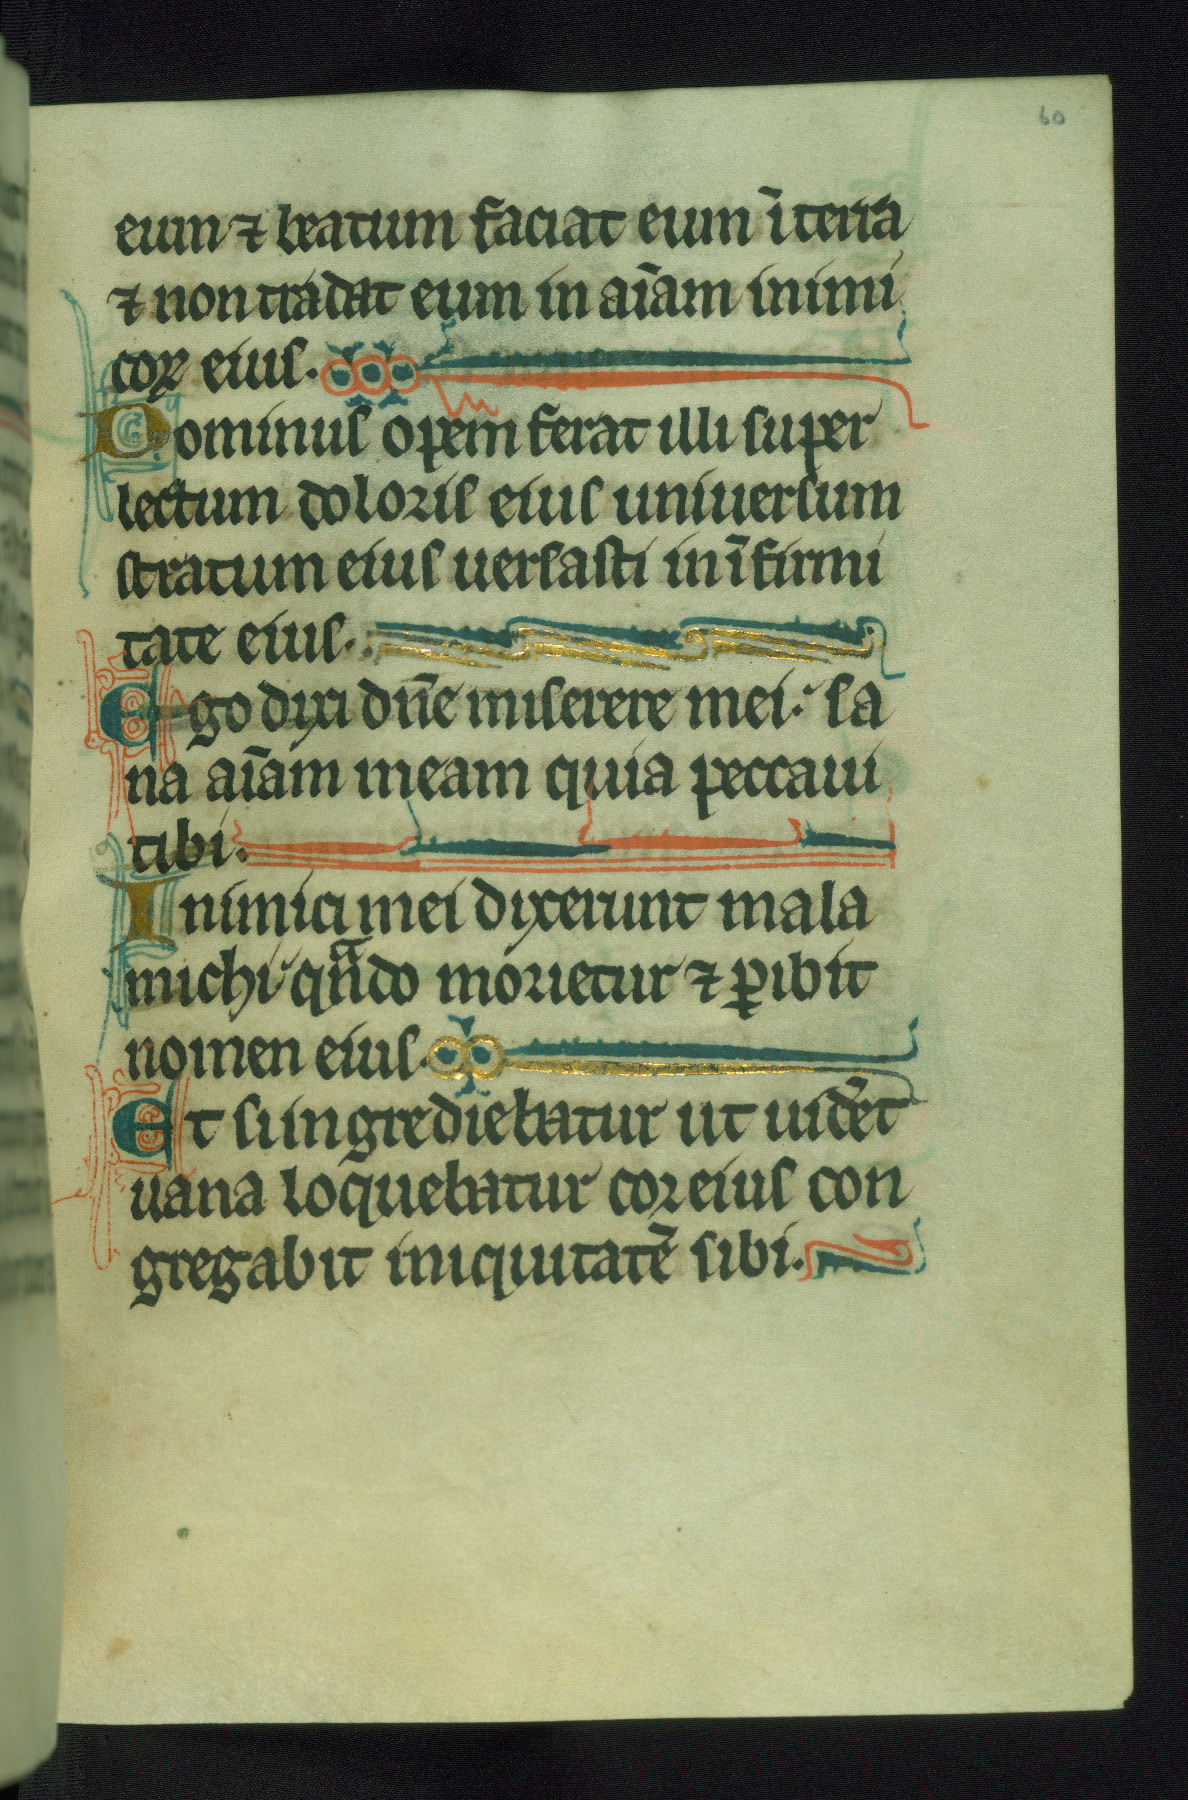 60
eum ⁊ beatum faciat eum ī terra
⁊ non tradat eum in aīam inimi
coꝝ eius.
Dominus opem ferat illi super
lectum doloris eius uniuersum
stratum eius uersasti in īfirmi
tate eius.
Ego dixi dn̄e miserere mei: sa
na aīam meam quia peccaui
tibi.
Inimici mei dixerunt mala
michi qᵃndo morietur ⁊ ꝑibit
nomen eius.
Et si ingrediebatur ut uidēt
uana loquebatur cor eius con
gregabit iniquitatē sibi.